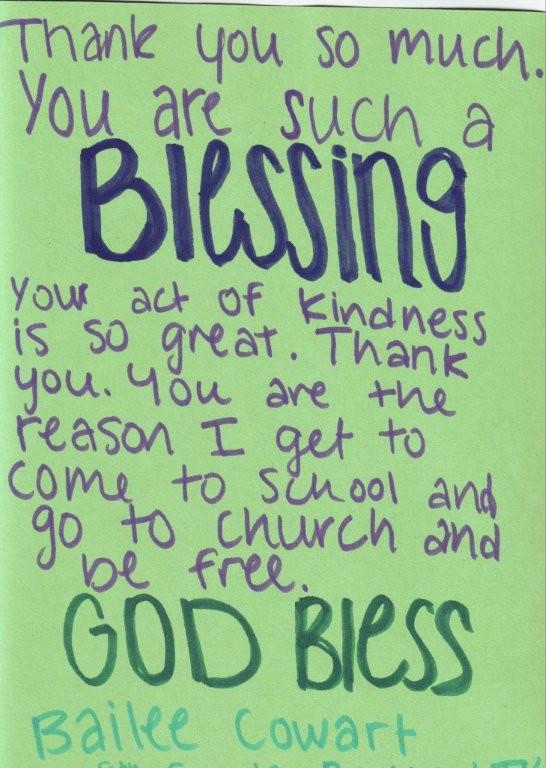 Thank you so much.
You are such a
Blessing
Your act of kindness
is so great. Thank
you. You are the
reason I get to
come to school and
go to church and
be free.
GOD Bless
Bailee Cowart